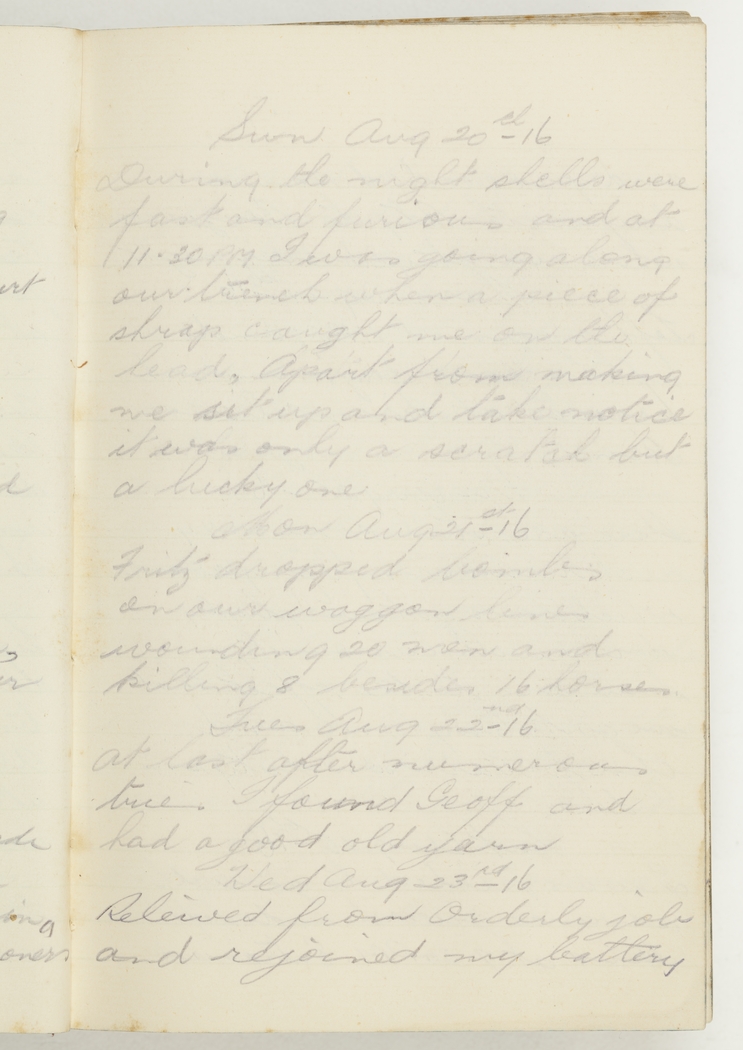 Sun Aug 20th-16
During the night shells were
fast and furious and at
11.30PM I was going along
our trench when a piece of
shrap caught me on the
head, Apart from making
me sit up and take notice
it was only a scratch but
a lucky one
Mon Aug 21st-16
Fritz dropped bombs
on our waggon lines
wounding 20 men and
killing 8 besides 16 horses
Tues Aug 22nd-16
at last after numerous
tries I found Geoff and
had a good old yarn
Wed Aug 23rd-16
Releived from Orderly job
and rejoined my battery